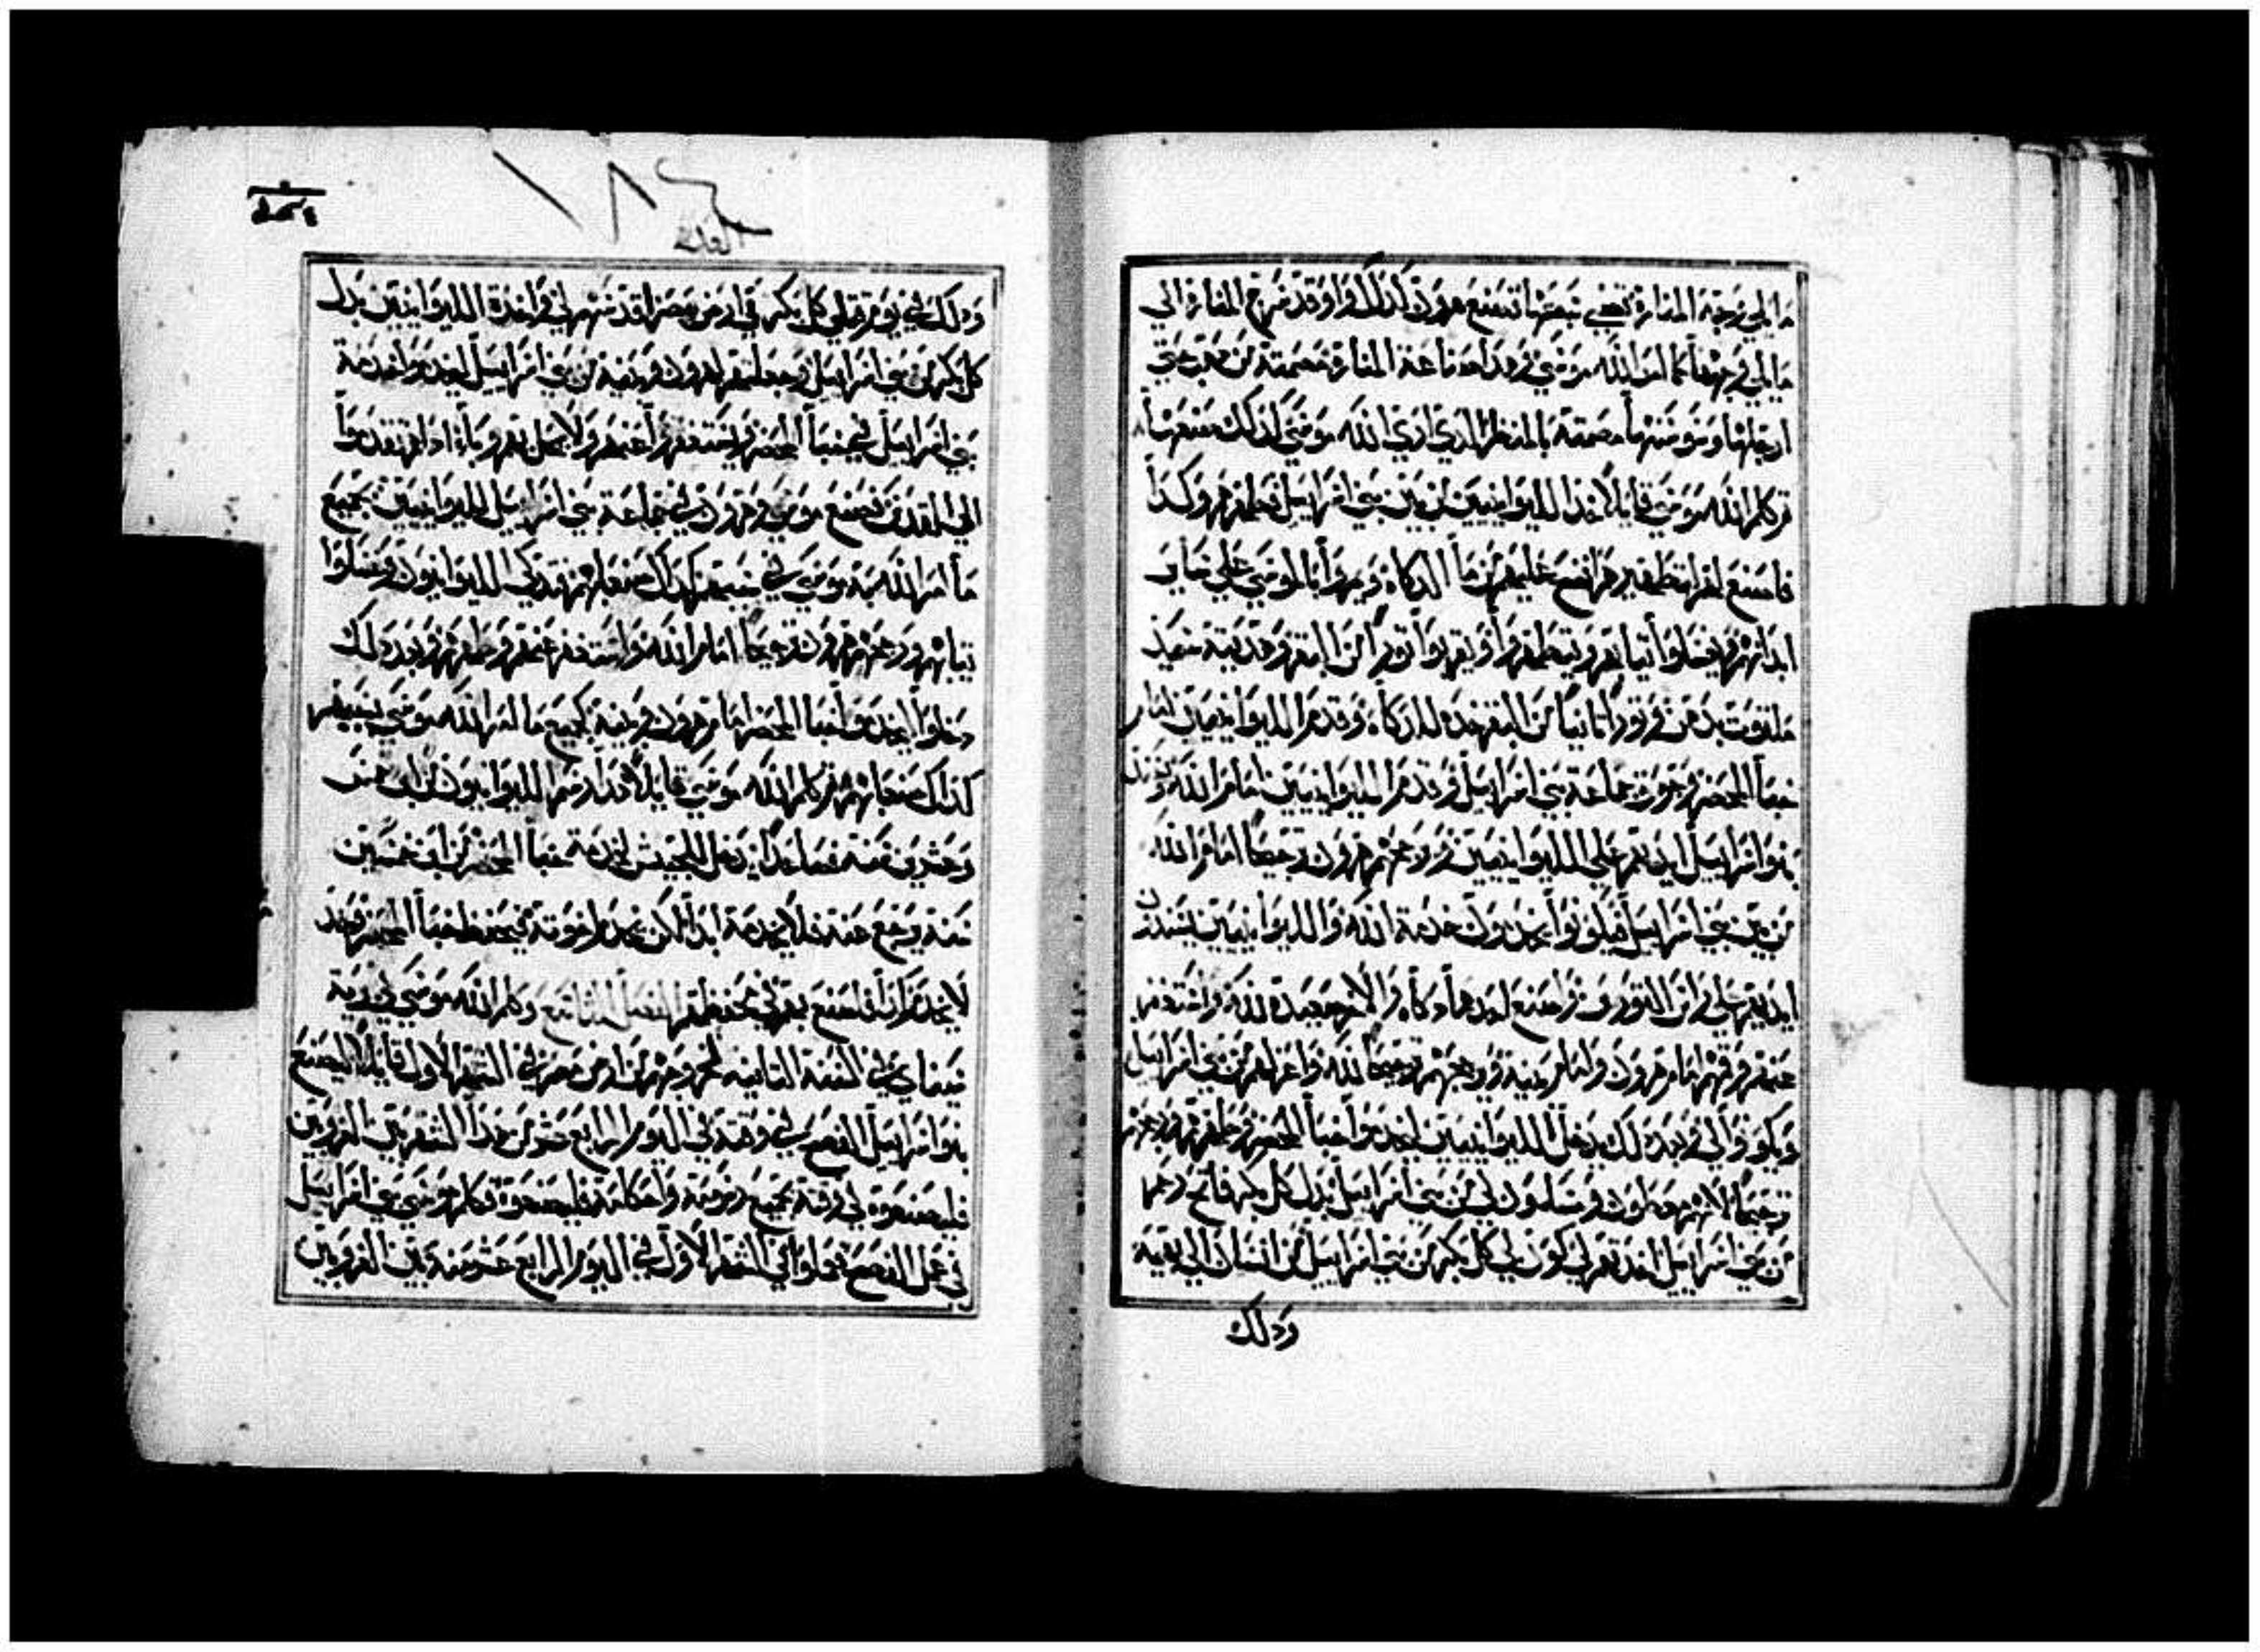 ما يلي وجه المنارة تضي سبعتها فصنع هرون كذلك واوقد سرج المنارة الي
ما يلي وجهها كما امر الله موسي وهذا صناعة المنارة مصمتة من ذهب حتي
ارجلها وسوسنها مصمتة بالمنظر الذي اري الله موسي كذلك صنعها
ثم كلم الله موسي قايلا خذ الليوانيين من بين بني اسراييل فطهرهم وكذا
فاصنع لهم لتطهيرهم انضح عليهم من ما الذكاة ويمروا بالموسي علي ساير
ابدانهم ويغسلوا ثيابهم ويتطهروا ويقربوا ثورا من البقر وهديته سميذ
ملتوت بدهن وثورا ثانيا من البقر خذه للذكاة وقدم الليوانيين امام
خبأ المحضر وجوق جماعة بني اسراييل وقدم الليوانيين امام الله ويسند
بنوا اسراييل ايديهم علي الليوانيين ويرددهم هرون ترجيحا امام الله
من بين بني اسراييل فيكونوا يخدمون خدمة الله والليوانيين يسندون
ايديهم علي راس الثورين واصنع احدهما ذكاة والاخر صعيدة لله واستغفر
عنهم وقفهم امام هرون وامام بنيه ورددهم ترجيحا لله واعزلهم من بني اسراييل
ويكونوا لي وبعد ذلك يدخل الليوانيين ليخدموا خبأ المحضر وطهرهم ورددهم
ترجيحا لانهم معطون ومسلمون لي من بني اسراييل بدل كل بكر فاتح رحم
من بني اسراييل اخذتهم لي كون لي كل بكر من بني اسراييل من انسان الي بهيمة
وذلك
١٨٤
العدد
وذلك في يوم قتلي كل بكر في ارض مصر اقدستهم لي واخذة الليوانيين بدل
كل بكر من بني اسراييل وجعلتهم لهرون وبنيه من بني اسراييل ليخدموا خدمة
بني اسراييل في خبأ المحضر ويستغفروا عنهم ولا يحل بهم وبأ اذا تقدموا
الي القدس فصنع موسي وهرون وجماعة بني اسراييل لليوانيين بجميع
ما امر الله به موسي في سببهم كذلك صنع بهم فتذكي الليوانيون وغسلوا
ثيابهم ورددهم هرون ترجيحا امام الله واستغفر عنهم وطهرهم وبعد ذلك
دخلوا ليخدموا خبأ المحضر امام هرون وبنيه كجميع ما امر الله موسي بسببهم
كذلك صنعا بهم ثم كلم الله موسي قايلا هذا رسم الليوانيون من ابن خمس
وعشرين سنة فصاعدا يدخل للجيش لخدمة خبأ المحضر من ابن خمسين
سنة يرجع عنه فلا يخدمه ابدا لكن يخدم اخوته فيحفظ خبأ المحضر وخدمة
لا يخدم كذا فاصنع بهم في محفظهم الفصل التاسع وكلم الله موسي في برية
سيناي في السنة الثانية لخروجهم من ارض مصر في الشهر الاول قايلا ليصنع
بنوا اسراييل الفصح في وقته في اليوم الرابع عشر من هذا الشهر بين الغروبين
فليصنعوه في وقته بجميع رسومه واحكامه فليصنعوه فكلم موسي بني اسراييل
في عمل الفصح فعملوا في الشهر الاول في اليوم الرابع عشر منه بين الغروبين